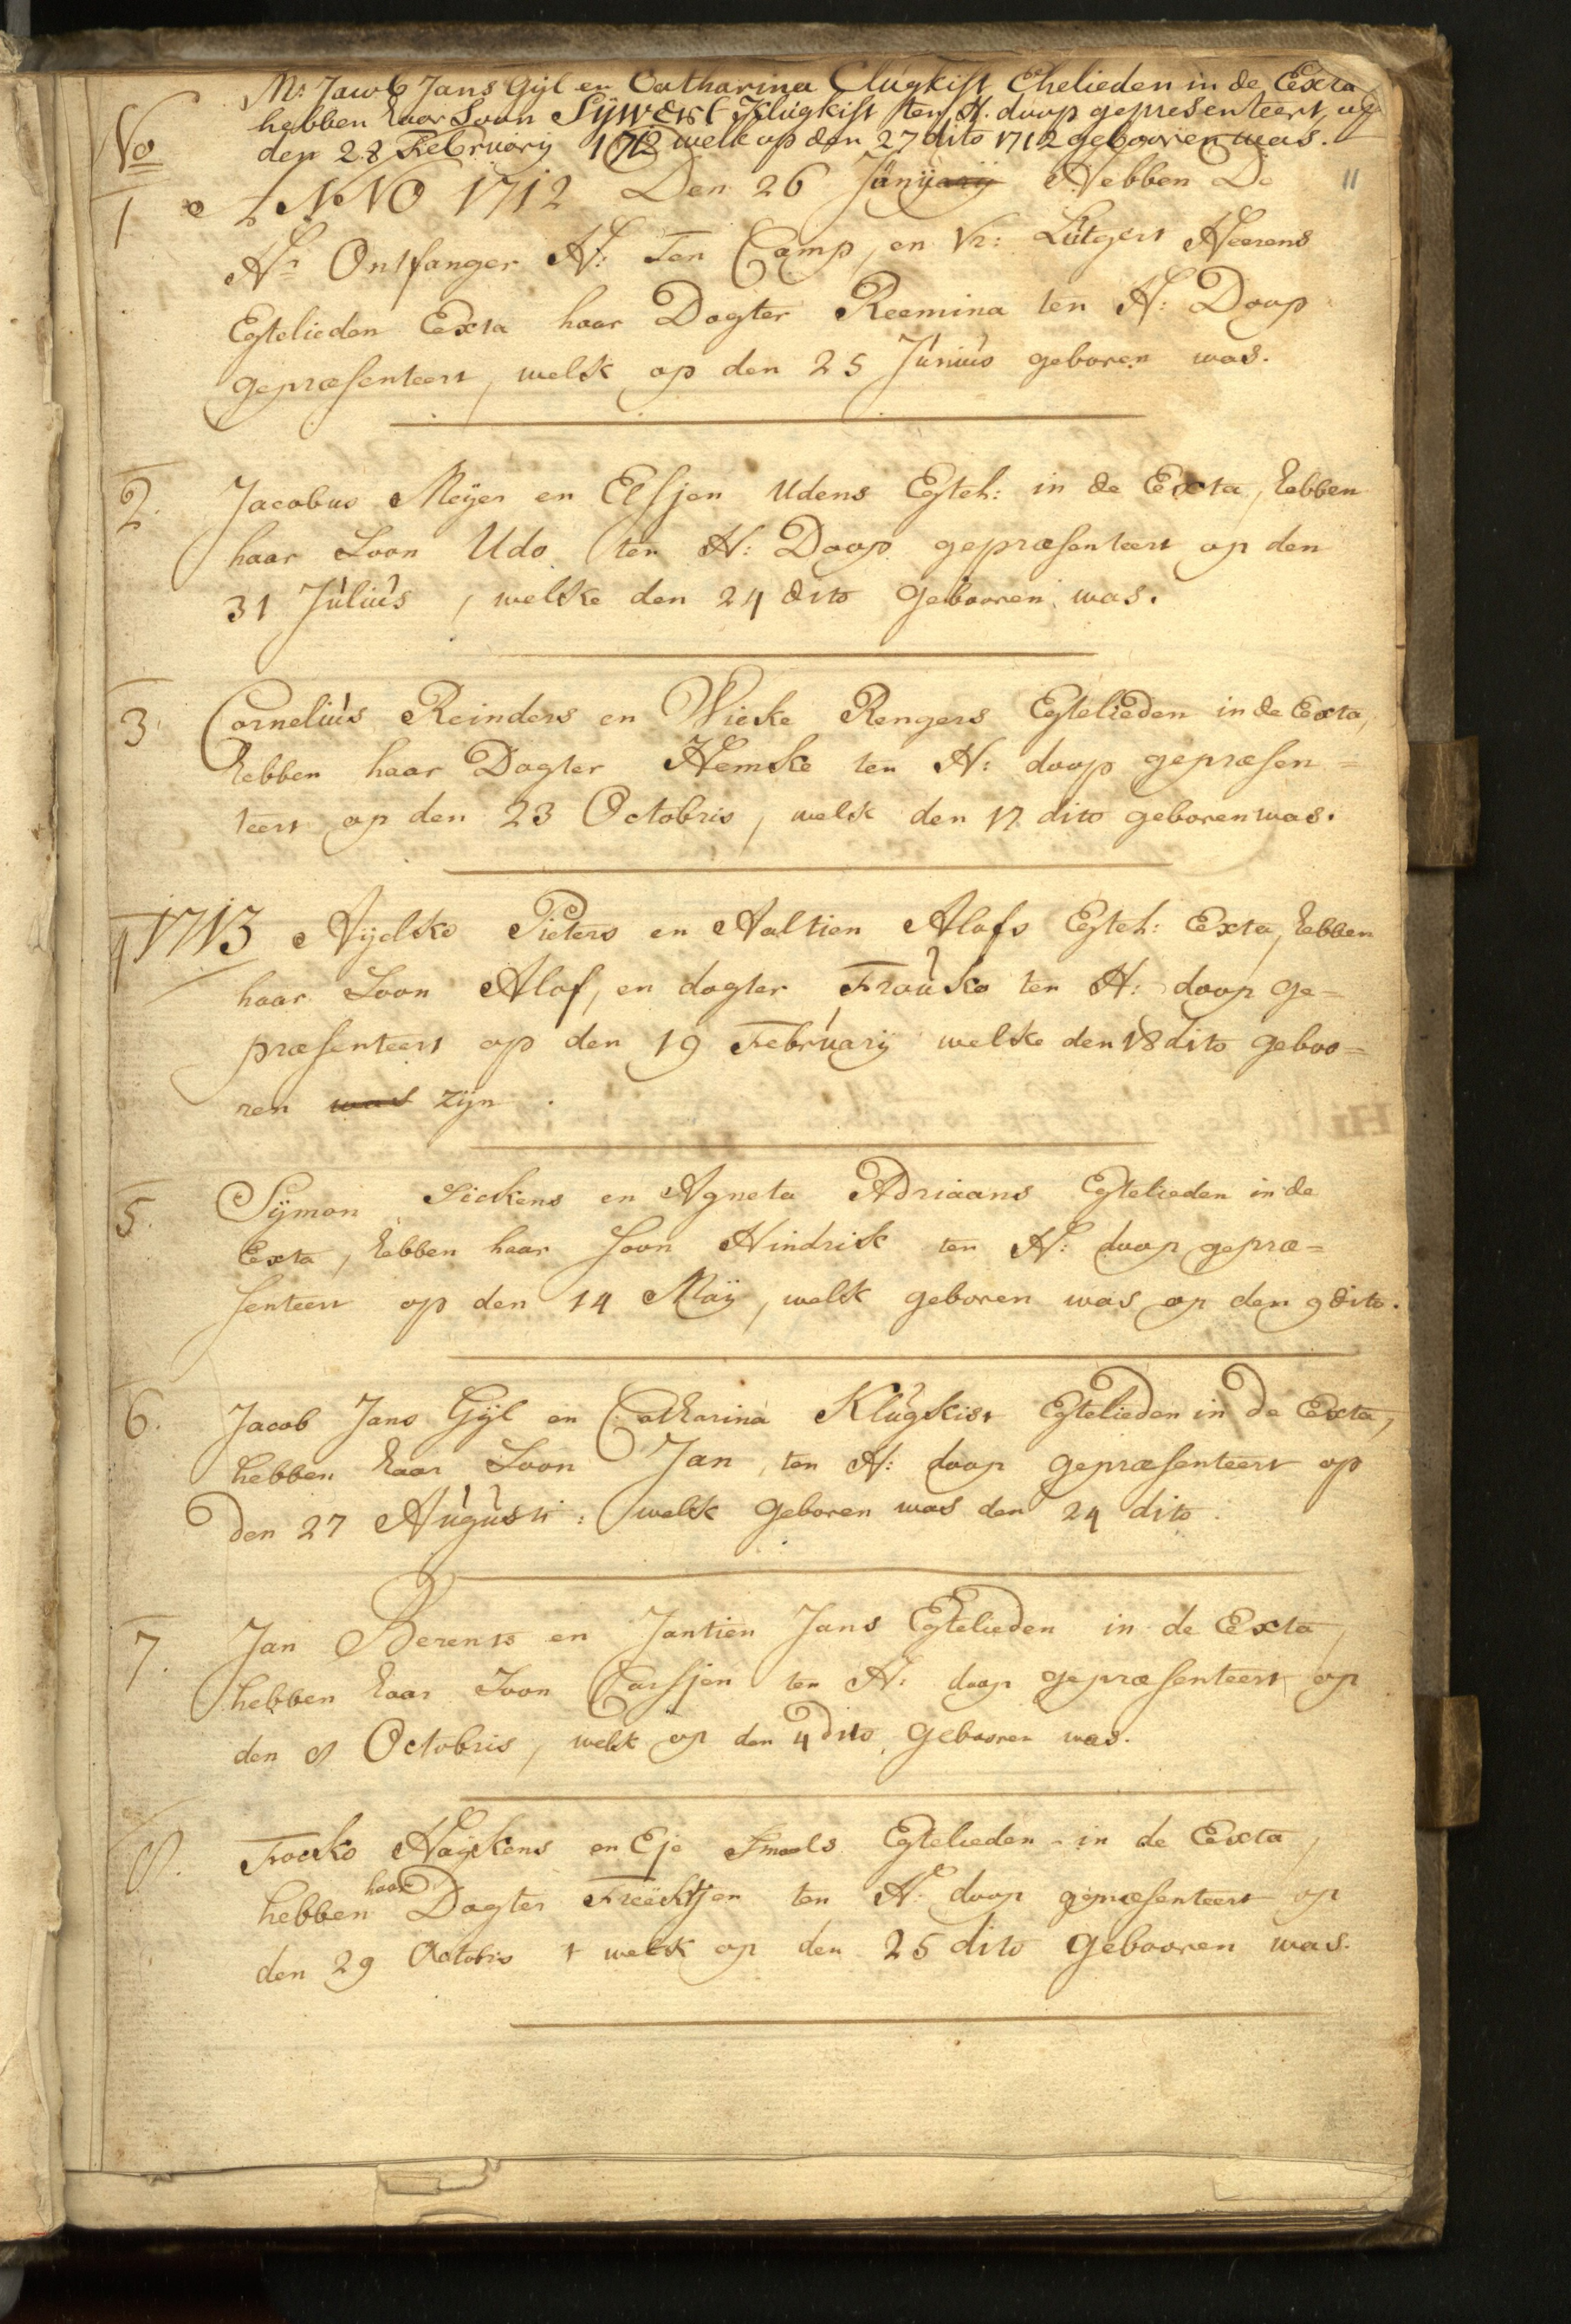 Mr Jacob Jans Gijl en Catharina Clugkist Ehelieden in de Exta
hebben haar Soon Sijwert Klugkist ten H. doop gepresenteert op
den 28 February 1712 welk op den 27 dito 1712 gebooren was.
No
11
1 ANNO 1712 Den 26 Hebben De
Hr Ontfanger H: Ten Camp, en Vr: Lutgert Heerens
Egtelieden Exta haar Dogter Reemina ten H: Doop
gepræsenteert, welk op den 25 Junius geboren was.
2. Jacobus Meijer en Elsjen Udens Egtel: in de Exta, hebben
haar Soon Udo ten H: Doop gepræsenteert op den
31 Julius, welke den 24 dito gebooren was.
3. Cornelius Reinders en Wieke Rengers Egtelieden in de Exta,
hebben haar Dogter Hemke ten H: doop gepræsen=
teert op den 23 Octobris, welk den 17 dito geboren was.
4 1713 Aijelko Pieters en Aaltien Alofs Egtel: Exta, hebben
haar Soon Alof, en dogter Frauko ten H: doop ge=
præsenteert op den 19 February welke den 18 dito geboo=
ren was zijn.
5. Sijmon Siekens en Agneta Adriaans Egtelieden in de
Exta, hebben haar Soon Hindrik ten H: doop gepræ=
senteert op den 14 Maij, welk geboren was op den 9 dito.
6. Jacob Jans Gijl en Catharina Klugkist Egtelieden in de Exta,
hebben haar Soon Jan, ten H: doop gepræsenteert op
den 27 Augusti: welk geboren was den 24 dito.
7. Jan Berents en Jantien Jans Egtelieden in de Exta,
hebben haar Soon Carsjen ten H: doop gepræsenteert op
den 8 Octobris, welk op den 4 dito gebooren was.
8. Focko Haijkens en Eje Egtelieden in de Exta,
hebben haar Dogter Freëktjen ten H: doop gepræsenteert op
den 29 Octobris welk op den 25 dito gebooren was.